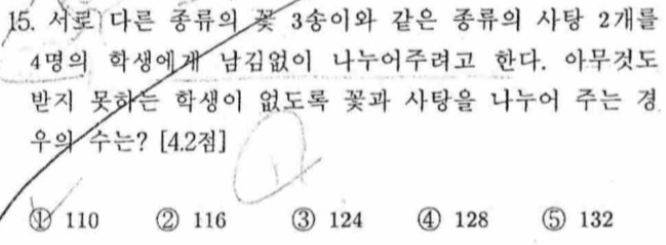 15. 서로 다른 종류의 꽃 3송이와 같은 종류의 사탕 2개를
4명의 학생에게 남김없이 나누어주려고 한다. 아무것도
받지 못하는 학생이 없도록 꽃과 사탕을 나누어 주는 경
우의 수는? [4.2점]
① 110 ② 116 ③ 124 ④ 128 ⑤ 132